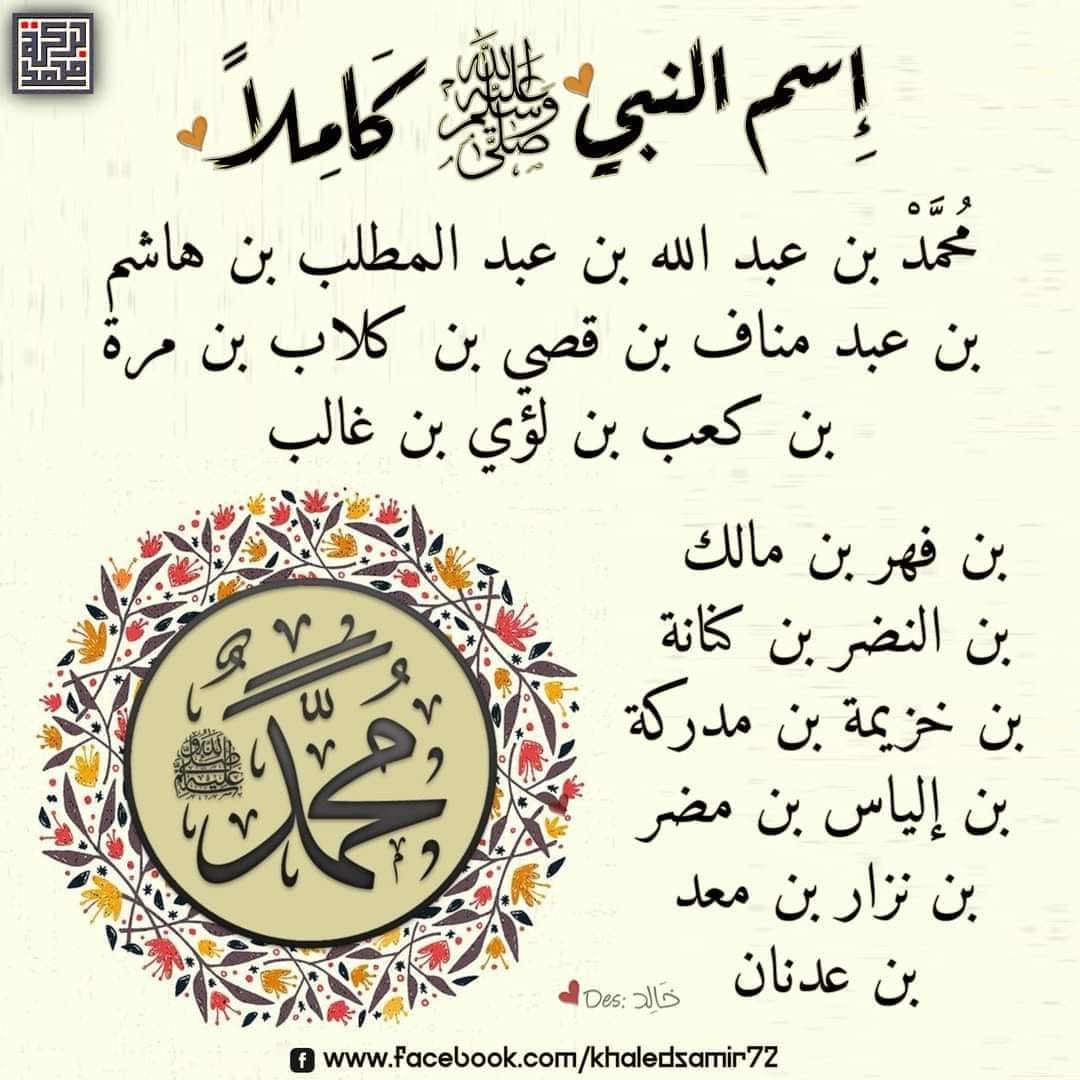 إِسم النبي صلى الله عليه وسلم كَامِلاً
مُحمَّدْ بن عبد الله بن عبد المطلب بن هاشم
بن عبد مناف بن قصي بن كلاب بن مرة
بن كعب بن لؤي بن غالب
بن فهر بن مالك
بن النضر بن كنانة
بن خزيمة بن مدركة
بن إلياس بن مضر
بن نزار بن معد
بن عدنان
مُحمَّدٌ
صلى الله عليه وسلم
Des: خَالِد
www.facebook.com/khaledsamir72